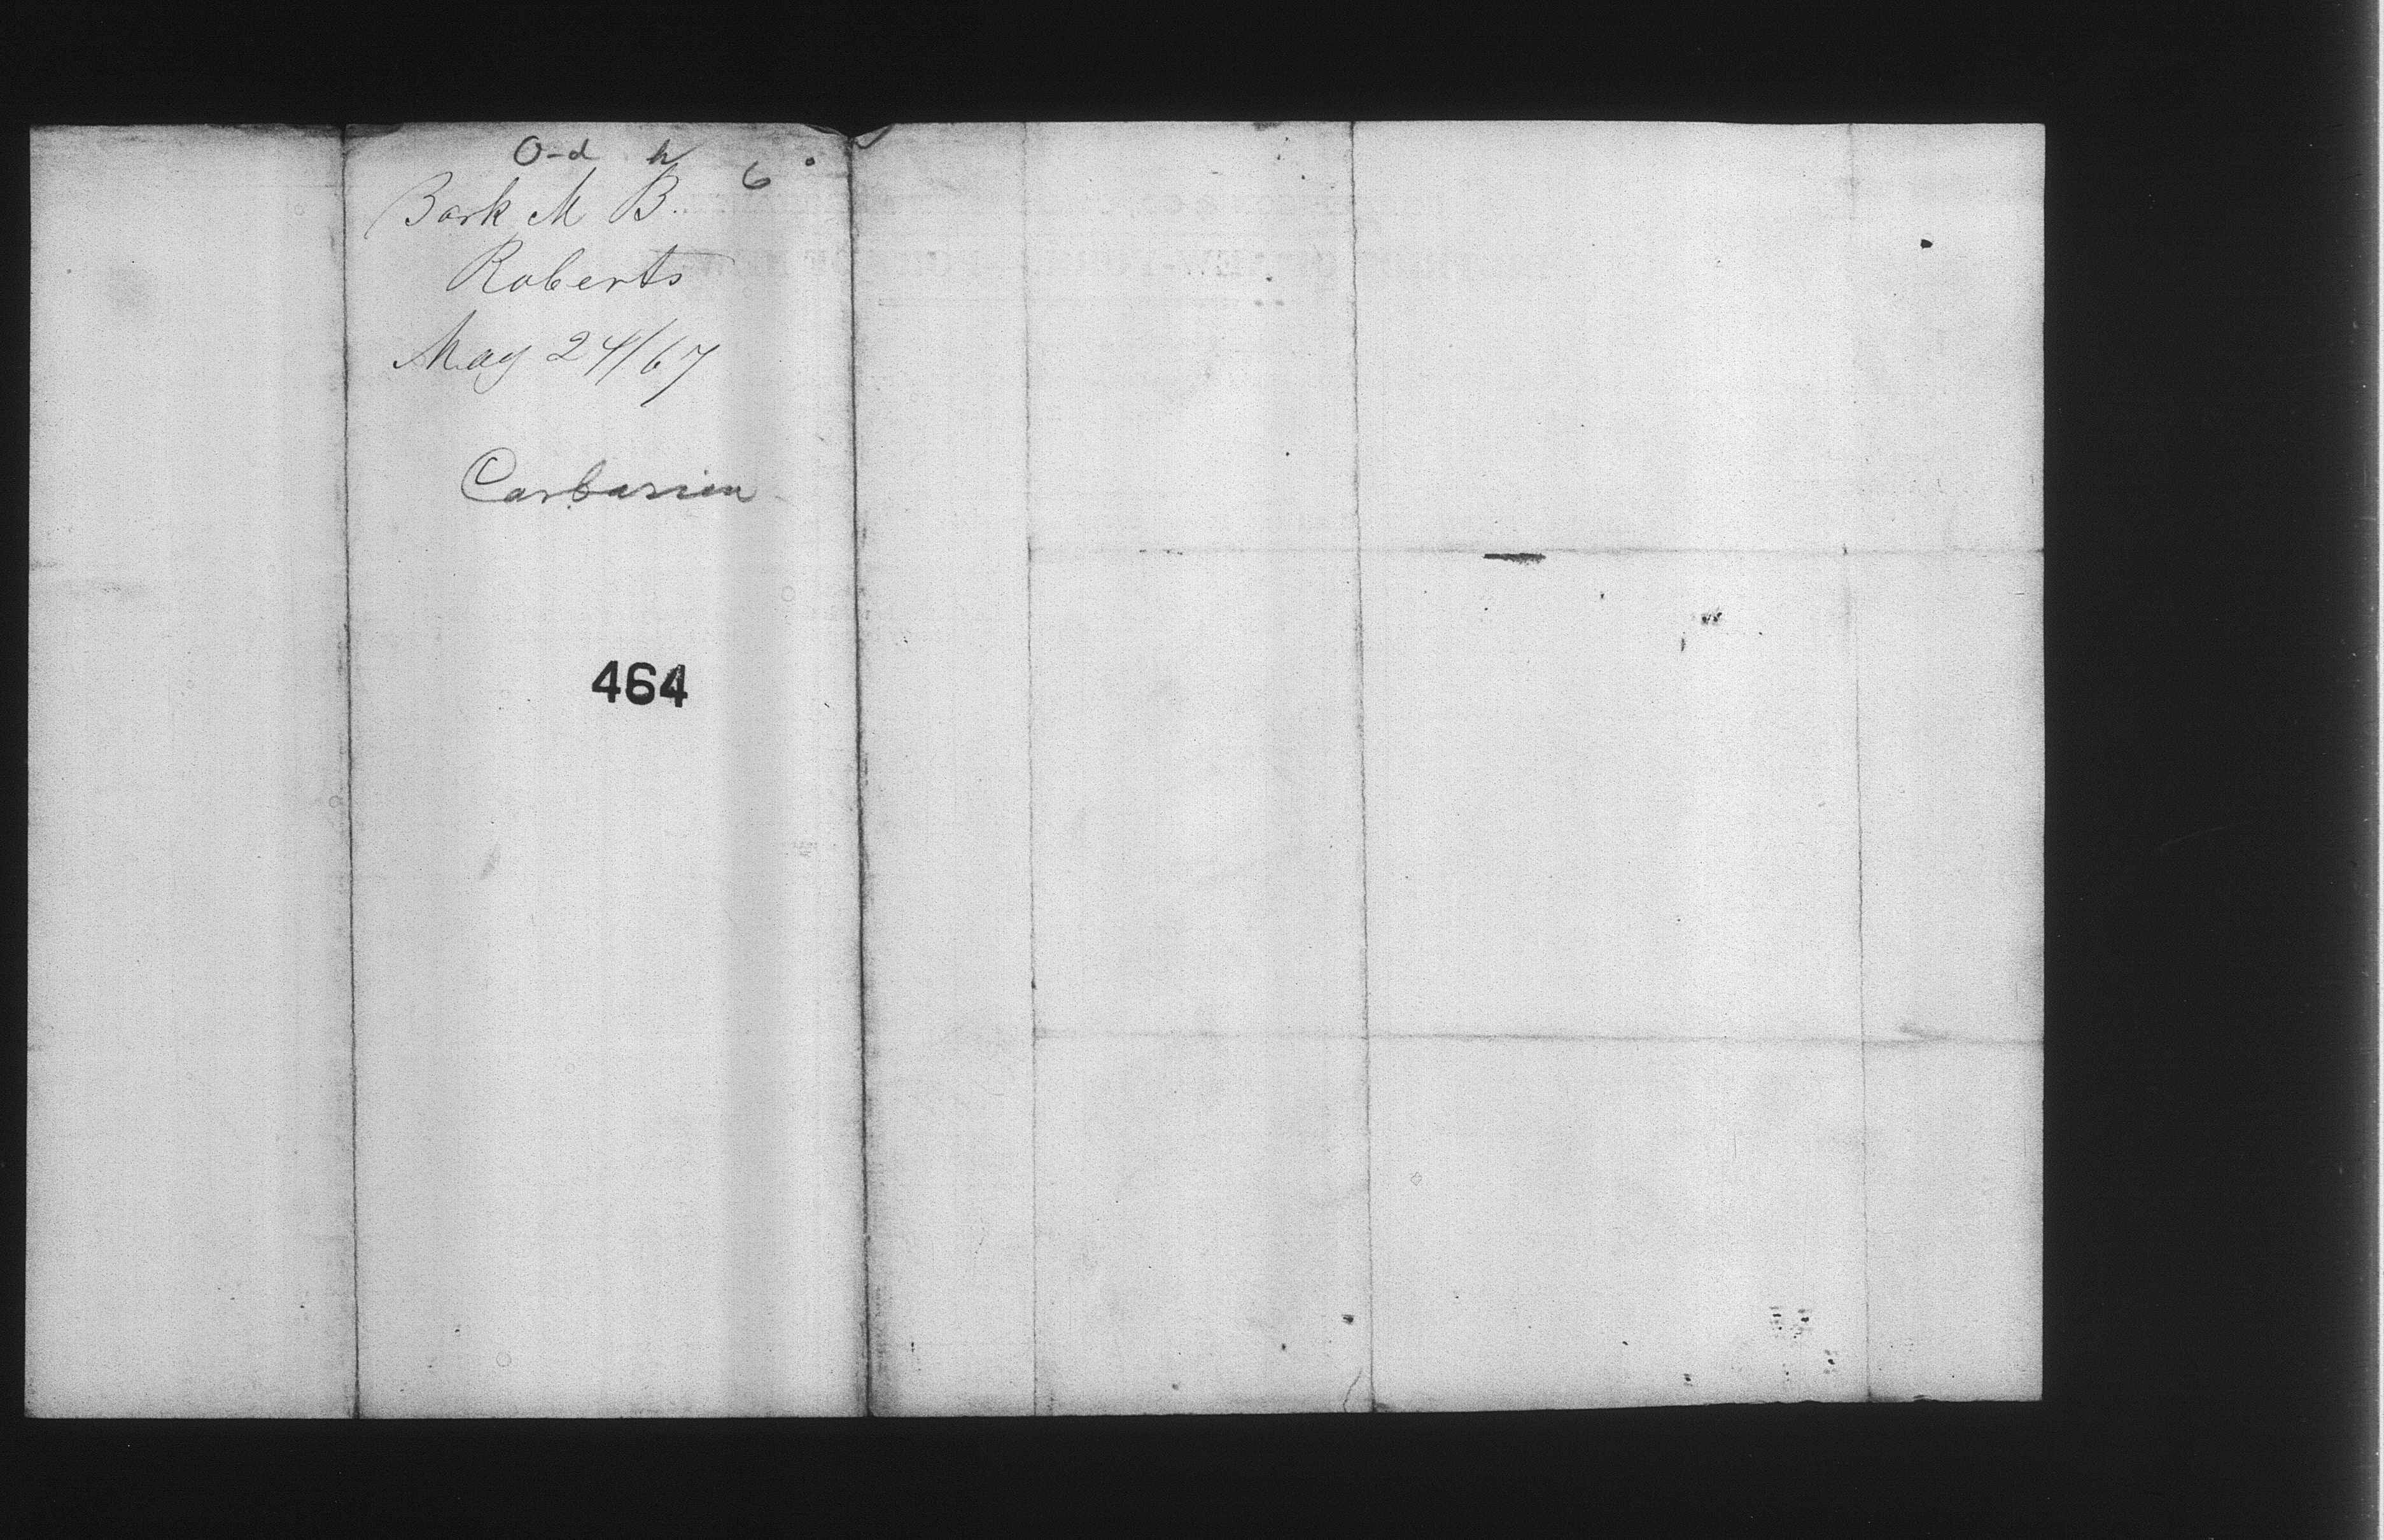 O-d h 6
Bark M B.
Roberts
May 24/67
Carbarien
464